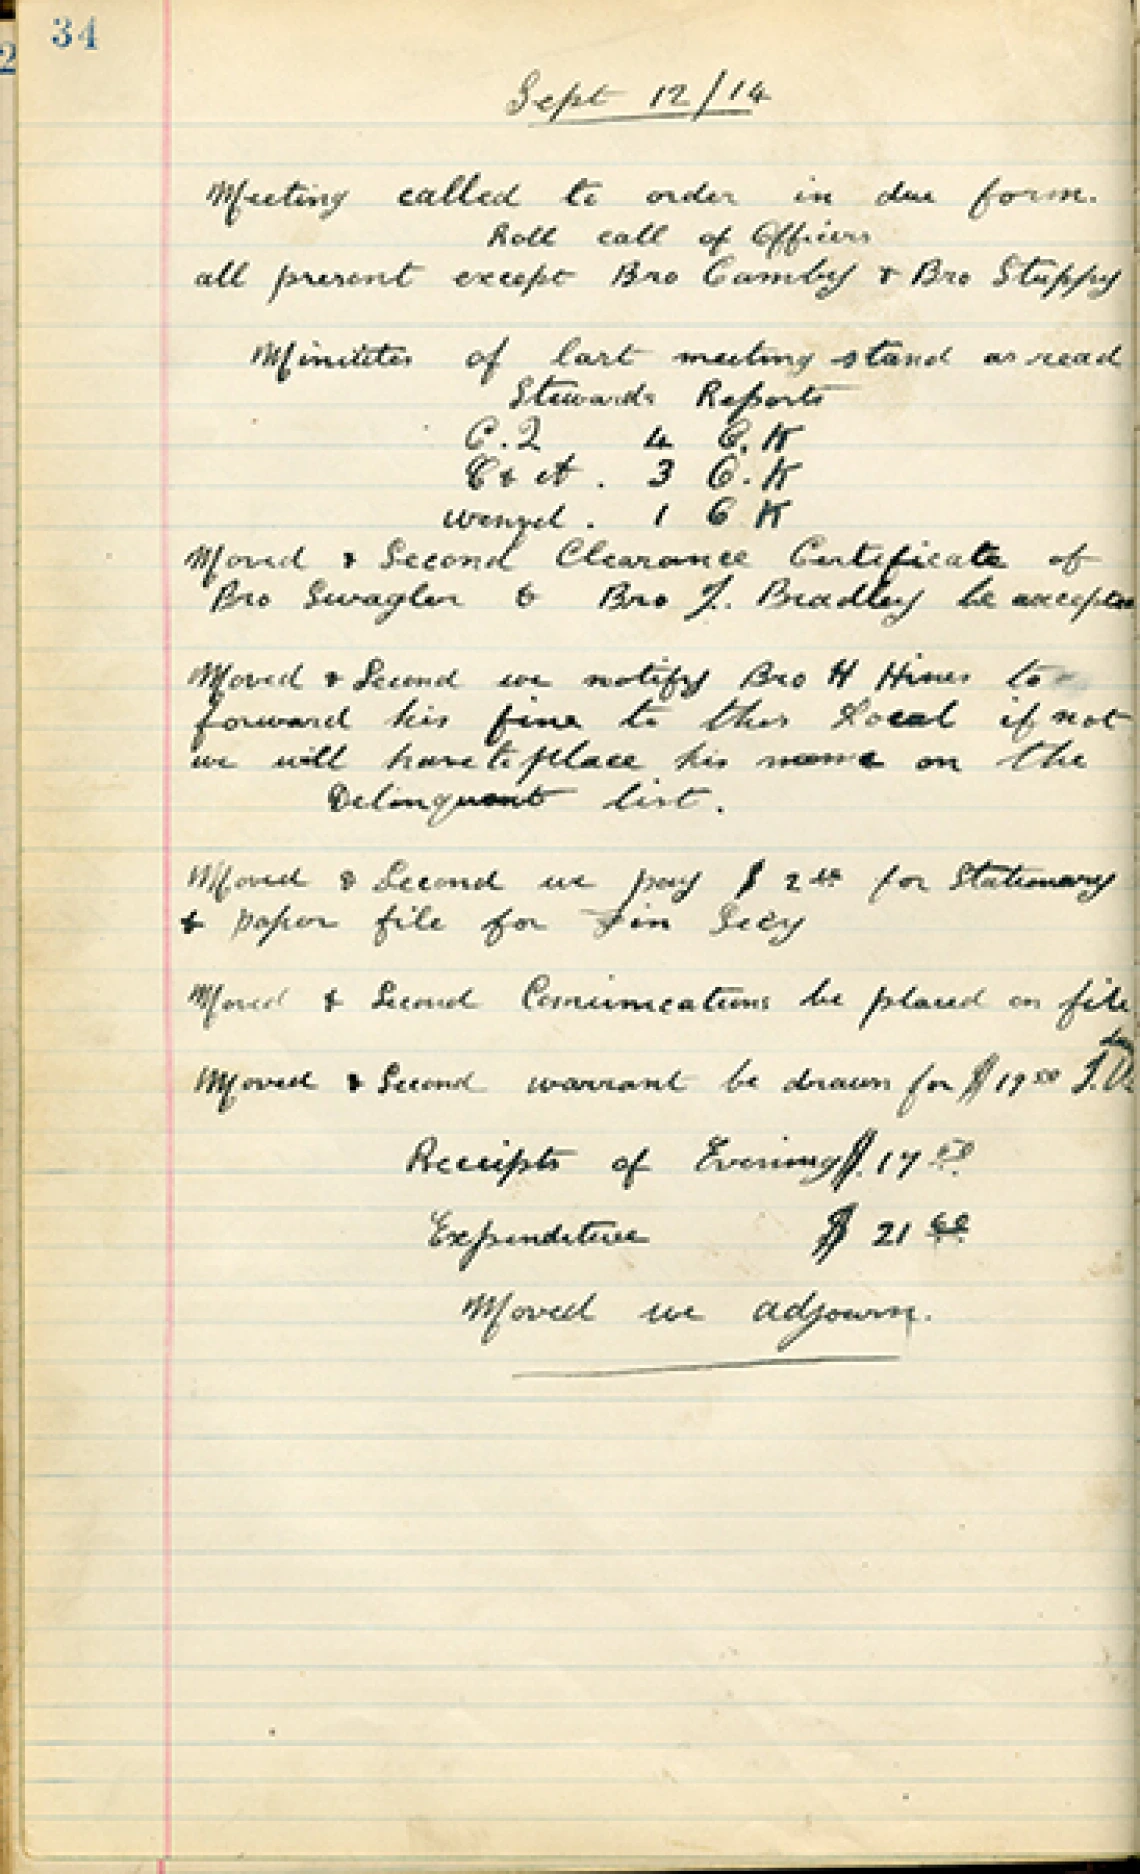 34
Sept 12/14
Meeting called to order in due form.
Roll call of Officers
all present except Bro Camby & Bro Stuppy
Minitites of last meeting stand as read
Stewards Reports
C.Q 4 O.K
C & A . 3 O.K
Wenzel . 1 O K
Moved & Second Clearance Certificate of
Bro Swagler & Bro J. Bradley be accepted
Moved & Second we notify Bro H Hines to
forward his fine to this Local if not
we will have to place his name on the
Delinquent list.
Moved & Second we pay $ 2 for Stationary
& paper file for Fin Secy
Moved & Second Comunications be placed on file
Moved & Second warrant be drawn for $ 19
Receipts of Evening $. 17
Expenditure $ 21
Moved we adjourn.